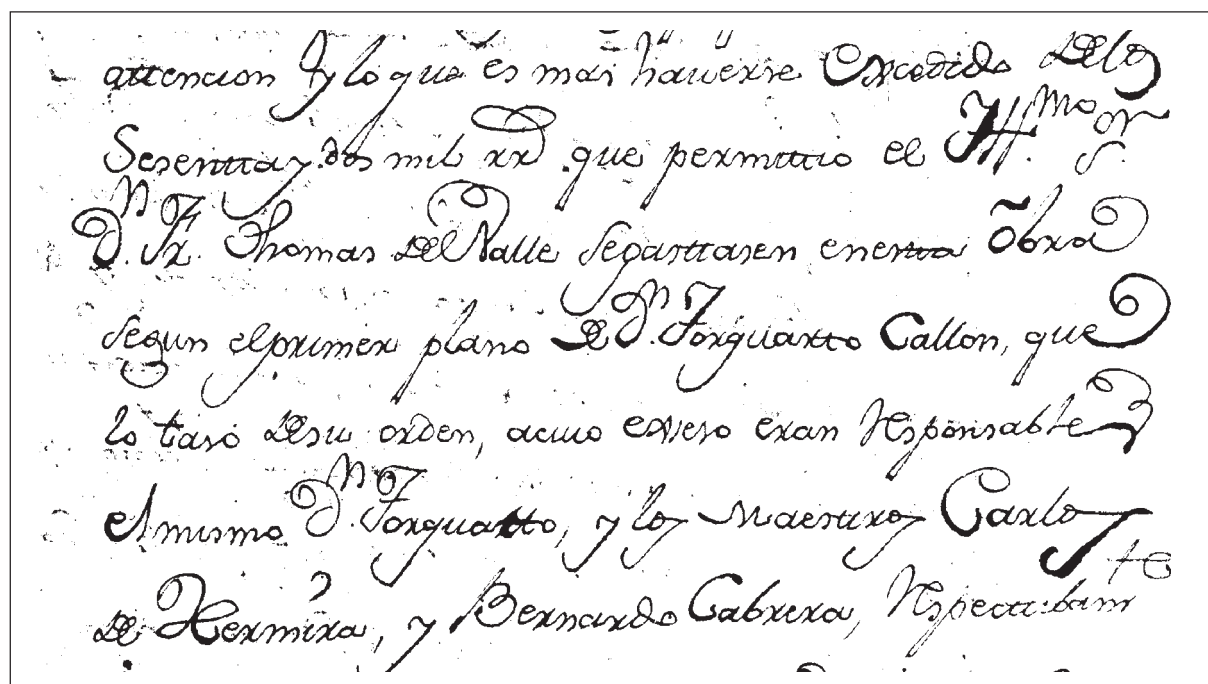 attencion y lo que es mas hauerse excedido Delos
Sesentta y dos mil rrs que permittio el Illmo Sr
Dn Fr. Thomas Del Valle segasttasen enestta obra
segun elprimer plano De Dn Torquatto Callon, que
lo taso Desu orden, acuio exseso eran Responsables
elmismo Dn Torquatto, y los Maestros Carlos
De Hermira, y Bernardo Cabrera, Respectibamte